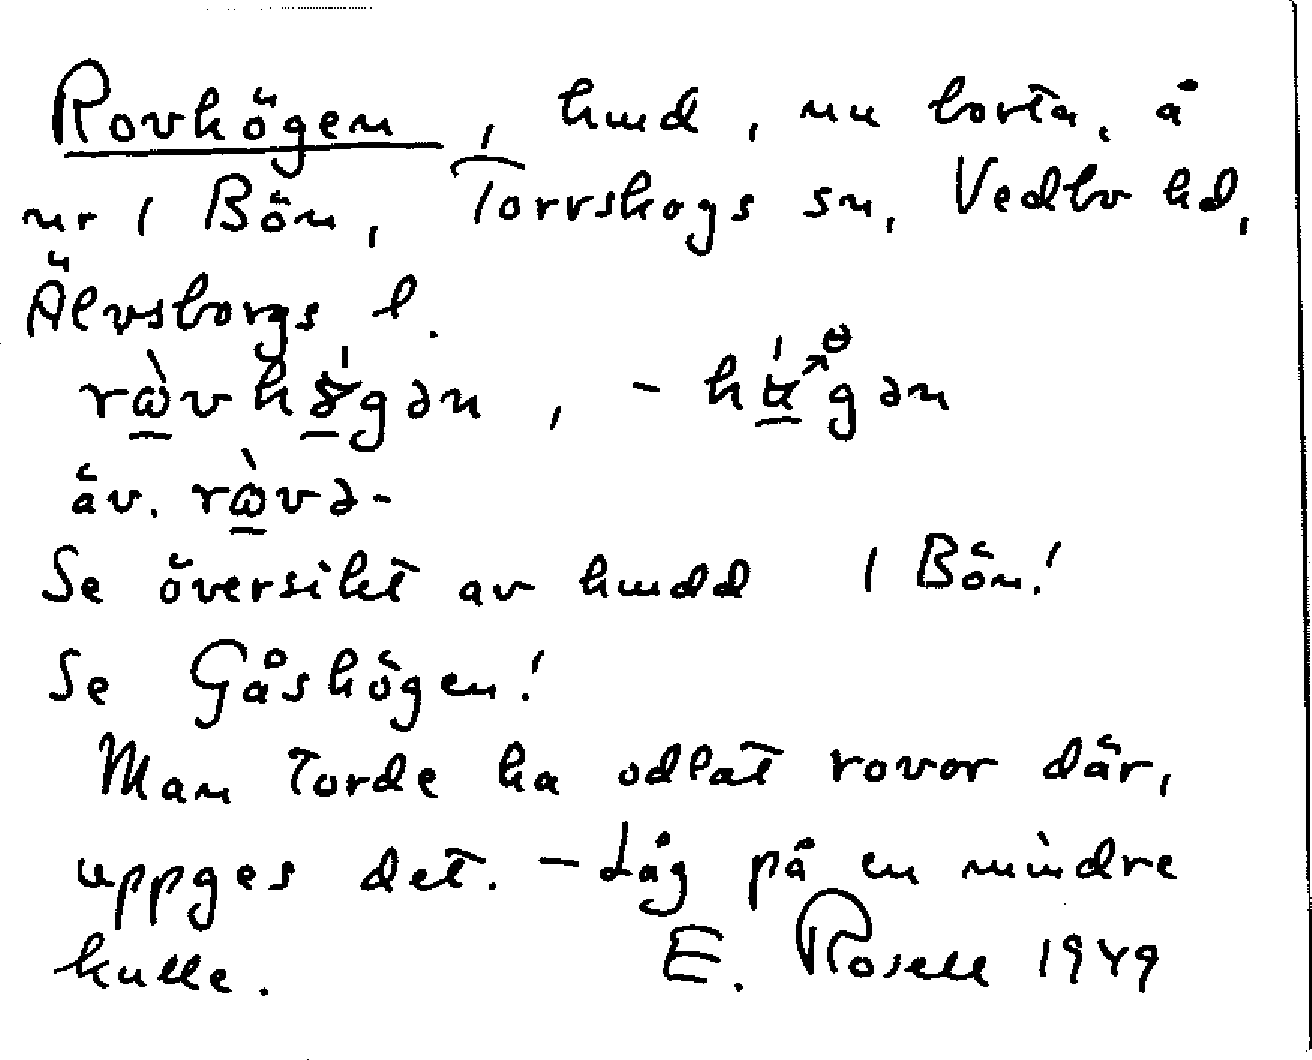 Rovhögen, hmd, nu borta, å
nr 1 Bön, Torrskogs sn, Vedbo hd,
Älvsborgs l.
rὼvhǿgən, -hʉ́gən
äv. rὼvə-
Se översikt av hmdd 1 Bön!
Se Gåshögen!
Man torde ha odlat rovor där,
uppges det. - Låg på en mindre
kulle. E. Rosell 1949